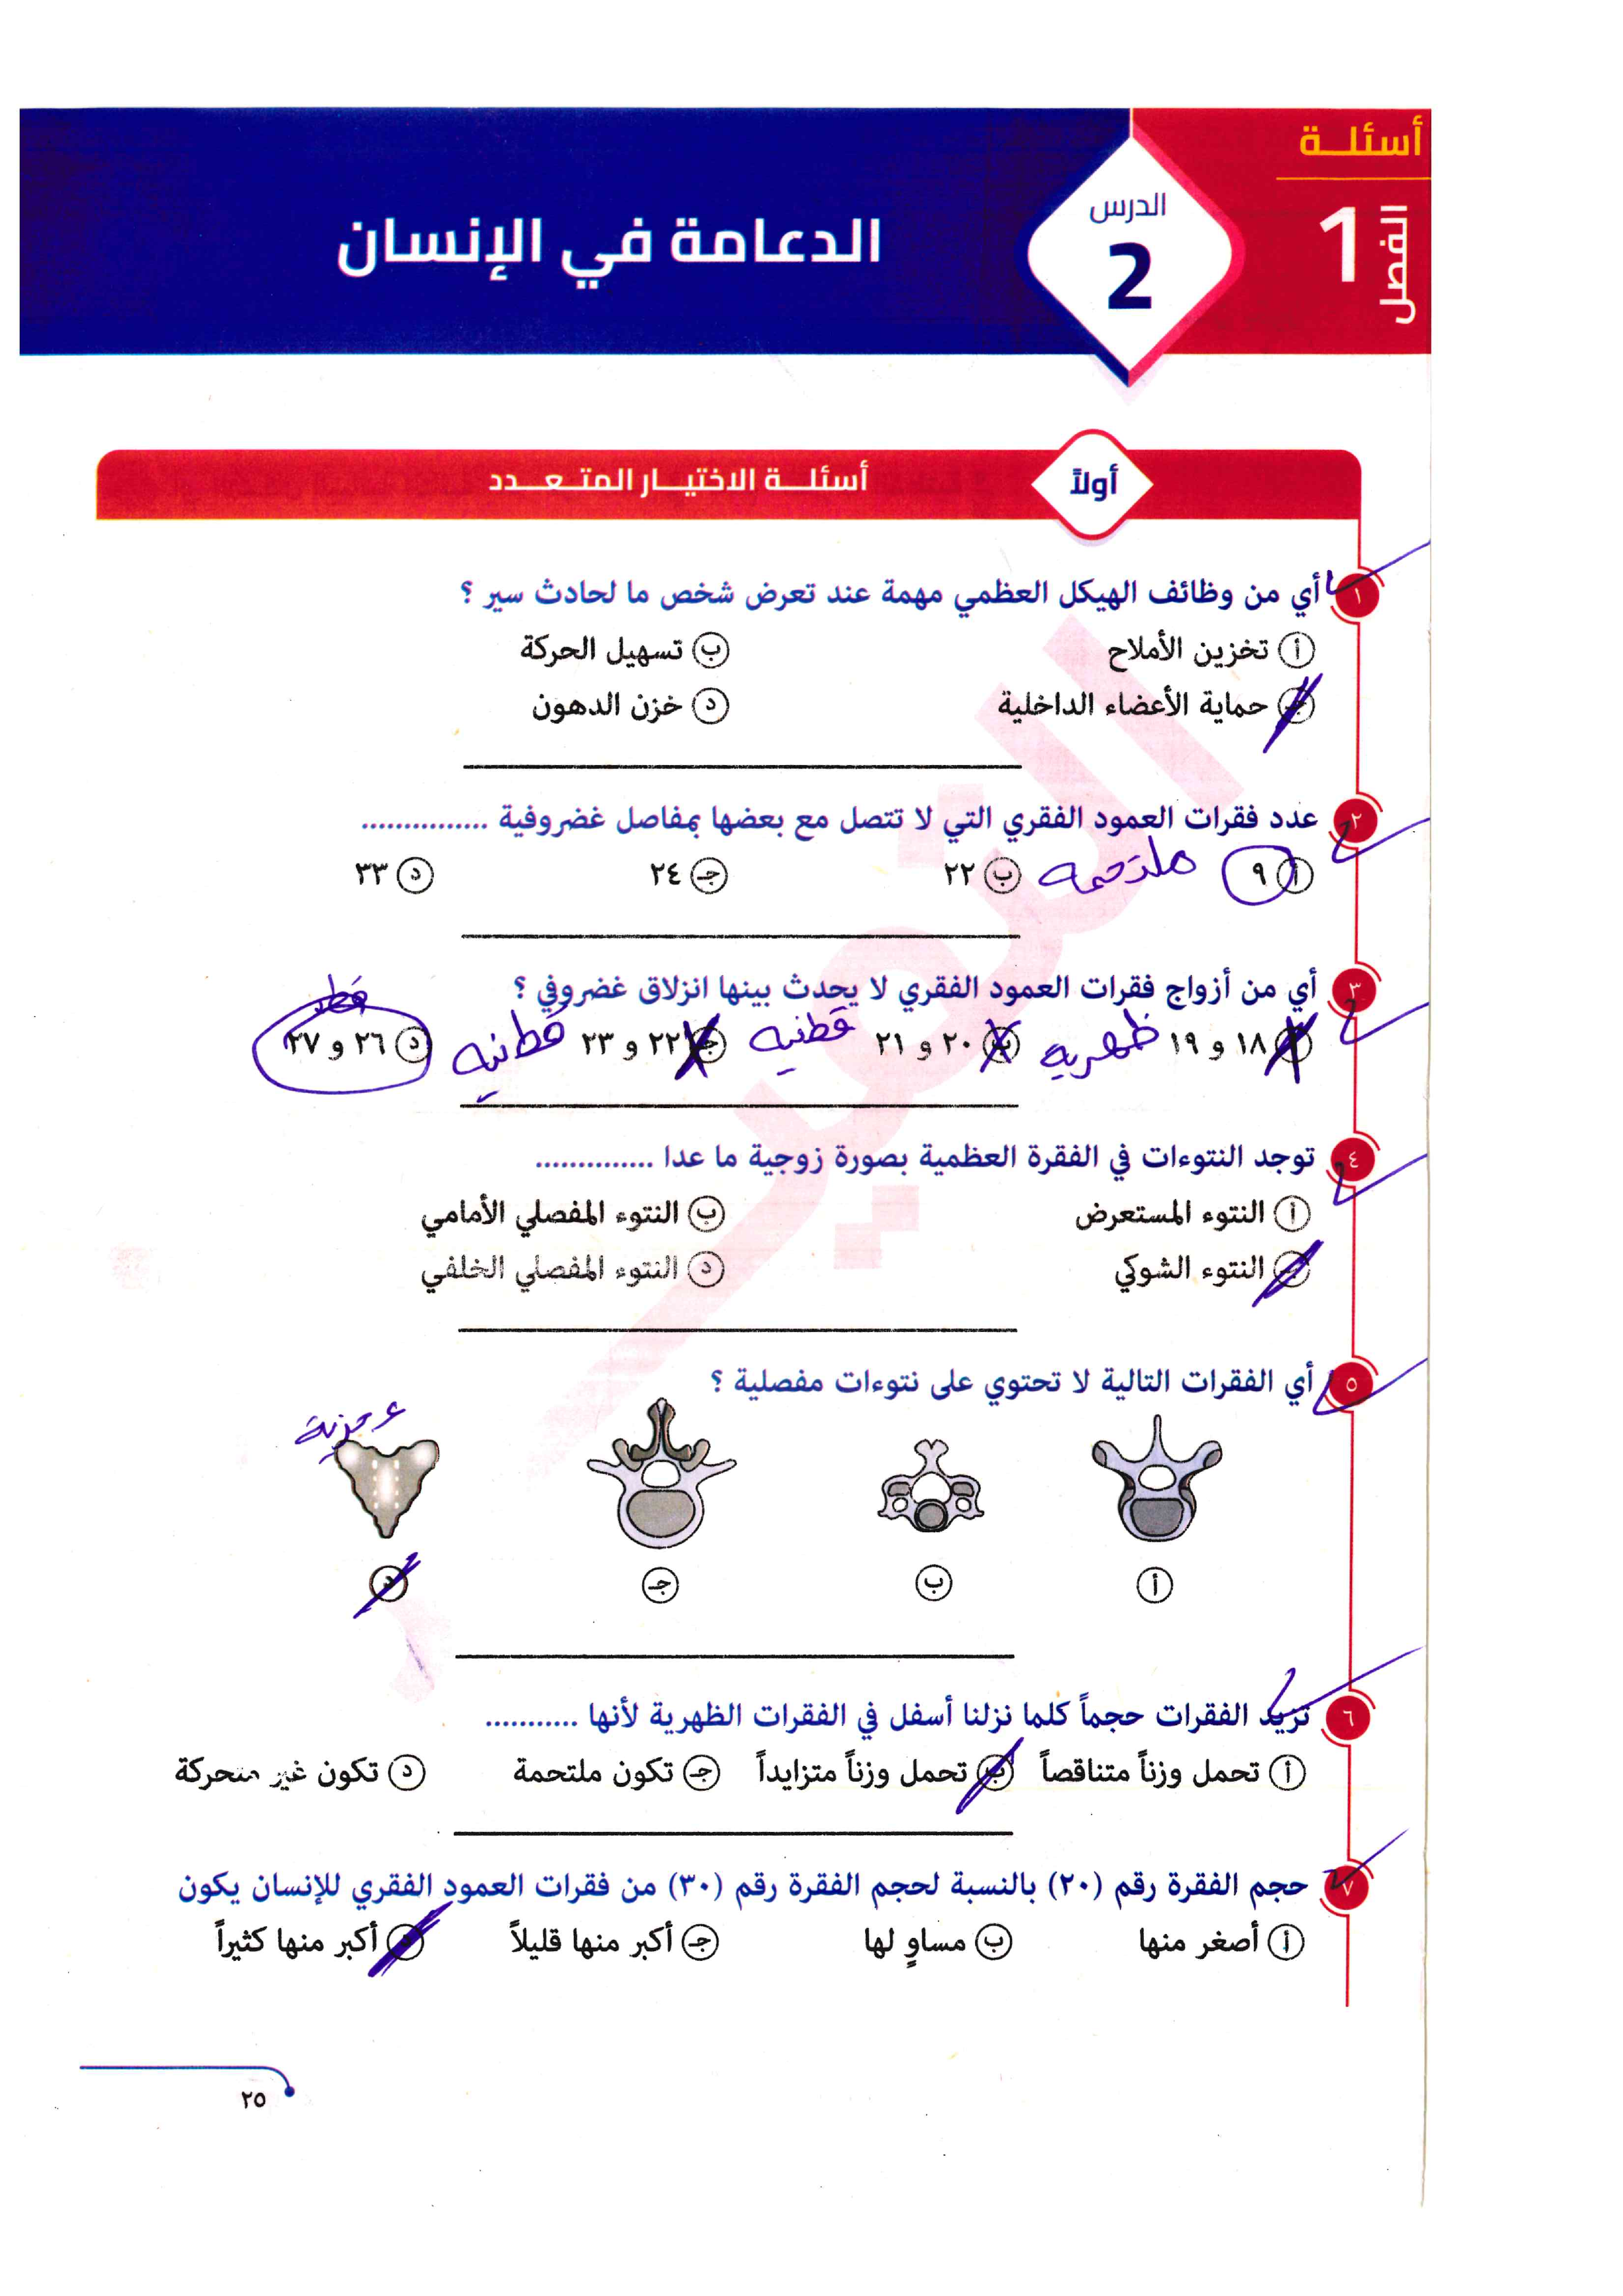 أسئلة
الفصل 1
الدرس 2
الدعامة في الإنسان
أولاً أسئلة الاختيار المتعدد
١ أي من وظائف الهيكل العظمي مهمة عند تعرض شخص ما لحادث سير ؟
أ تخزين الأملاح ب تسهيل الحركة
جـ حماية الأعضاء الداخلية د خزن الدهون
٢ عدد فقرات العمود الفقري التي لا تتصل مع بعضها بمفاصل غضروفية ...............
أ ٩ ملتحمه ب ٢٢ جـ ٢٤ د ٣٣
٣ أي من أزواج فقرات العمود الفقري لا يحدث بينها انزلاق غضروفي ؟
أ ١٨ و ١٩ ظهريه ب ٢٠ و ٢١ قطنيه جـ ٢٢ و ٢٣ قطنيه د ٢٦ و ٢٧
٤ توجد النتوءات في الفقرة العظمية بصورة زوجية ما عدا ..............
أ النتوء المستعرض ب النتوء المفصلي الأمامي
جـ النتوء الشوكي د النتوء المفصلي الخلفي
٥ أي الفقرات التالية لا تحتوي على نتوءات مفصلية ؟
عجزية
أ ب جـ د
٦ تزيد الفقرات حجماً كلما نزلنا أسفل في الفقرات الظهرية لأنها ...........
أ تحمل وزناً متناقصاً ب تحمل وزناً متزايداً جـ تكون ملتحمة د تكون غير متحركة
٧ حجم الفقرة رقم (٢٠) بالنسبة لحجم الفقرة رقم (٣٠) من فقرات العمود الفقري للإنسان يكون
أ أصغر منها ب مساوٍ لها جـ أكبر منها قليلاً د أكبر منها كثيراً
٢٥